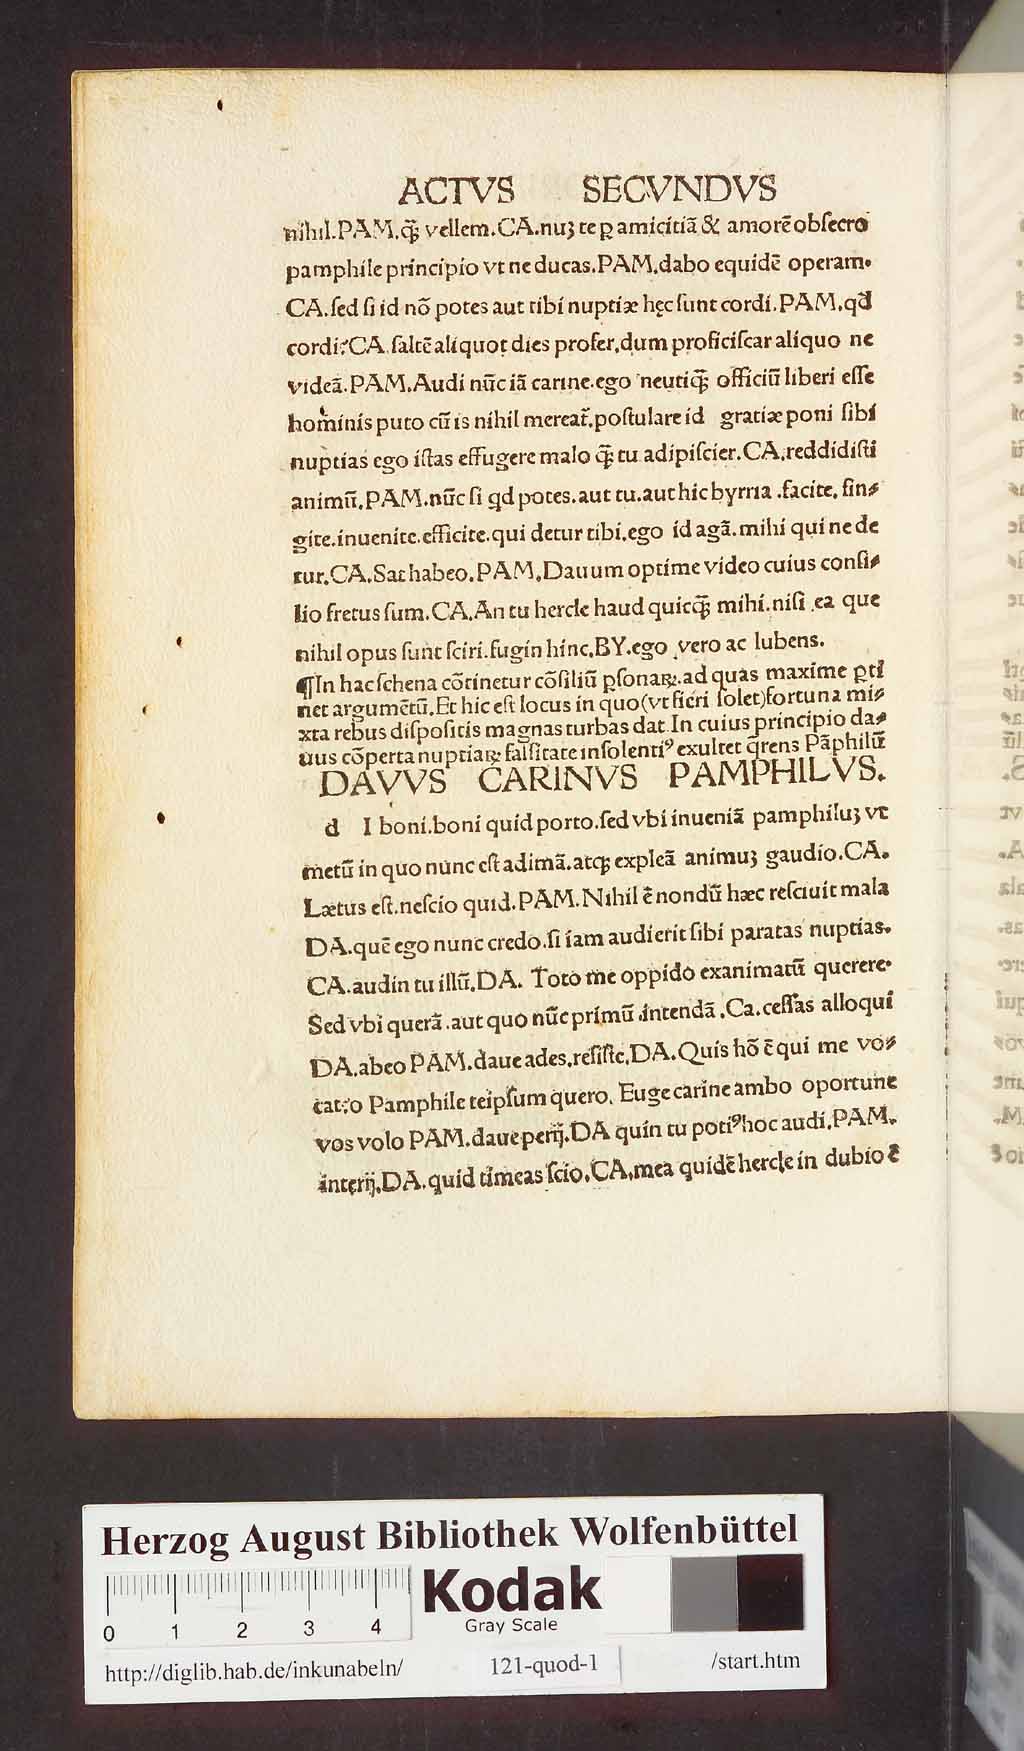 ACTVS SECVNDVS
nihil.PAM.q̃ vellem.CA.nuȝ te ꝑ amicitiã & amorē obſecro
pamphile principio vt ne ducas.PAM.dabo equidē operam.
CA.ſed ſi id nõ potes aut tibi nuptiæ hęc ſunt cordi.PAM.qđ
cordi?CA.ſaltē aliquot dies profer.dum proficiſcar aliquo ne
videã.PAM.Audi nūc iã carine.ego neutiq̃ officiū liberi eſſe
hominis puto cū is nihil mereat̃.poſtulare id gratiæ poni ſibi
nuptias ego iſtas effugere malo q̃ tu adipiſcier.CA.reddidiſti
animū.PAM.nūc ſi qd potes.aut tu.aut hic byrria .facite. fin⸗
gite.inuenite.efficite.qui detur tibi.ego id agã.mihi qui ne de
tur.CA.Sat habeo.PAM.Dauum optime video cuius conſi⸗
lio fretus ſum.CA.An tu hercle haud quicq̃ mihi.niſi ea que
nihil opus ſunt ſciri.fugin hinc.BY.ego vero ac lubens.
¶In hac ſchena cõtinetur cõſiliū ꝑſonaꝝ.ad quas maxime ꝑti
net argumētū.Et hic eſt locus in quo(vt fieri ſolet)fortuna mi⸗
xta rebus diſpoſitis magnas turbas dat.In cuius principio da⸗
uus cõperta nuptiaꝝ falſitate inſolentiꝰ exultet q̃rens Pãphilū
DAVVS CARINVS PAMPHILVS.
d I boni.boni quid porto.ſed vbi inueniã pamphiluȝ vt
metū in quo nunc eſt adimã.atqꝫ expleã animuȝ gaudio.CA.
Lætus eſt.neſcio quid.PAM.Nihil ē nondū hæc reſciuit mala
DA.quē ego nunc credo.ſi iam audierit ſibi paratas nuptias.
CA.audin tu illū.DA. Toto me oppido exanimatū querere.
Sed vbi querã.aut quo nūc primū intendã.Ca.ceſſas alloqui
DA.abeo PAM.daue ades.reſiſte.DA.Quis hõ ē qui me vo⸗
cat:o Pamphile teipſum quero. Euge carine ambo oportune
vos volo PAM.daue perij.DA quin tu potiꝰ hoc audi.PAM.
interij.DA.quid timeas ſcio.CA.mea quidē hercle in dubio ē
Herzog August Bibliothek Wolfenbüttel
Kodak
Gray Scale
0 1 2 3 4
http://diglib.hab.de/inkunabeln/ 121-quod-1 /start.htm